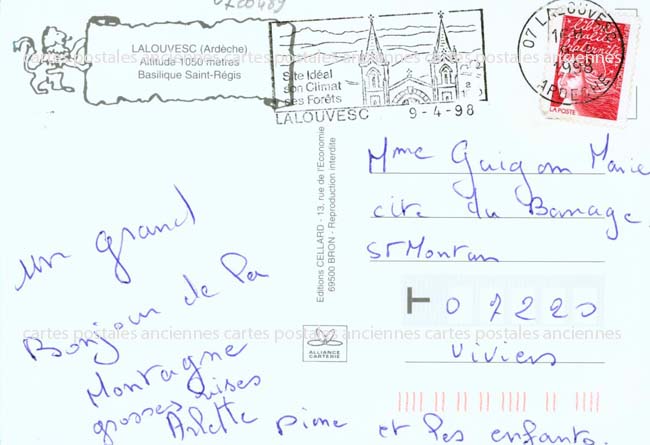 LALOUVESC (Ardèche)
Altitude 1050 mètres
Basilique Saint-Régis
Site Idéal
son Climat
ses Forêts
LALOUVESC 9-4-98
07 LALOUVESC
1998
ARDECHE
LA POSTE
Editions CELLARD - 13, rue de l'Economie
69500 BRON - Reproduction interdite
un grand
Bonjour de la
Montagne
grosses bises
Arlette Pierre et les enfants.
Mme Guigon Marie
cite du Barrage
St Montan
07220
Viviers
ALLIANCE
CARTERIE
cartes postales anciennes cartes postales anciennes cartes postales anciennes